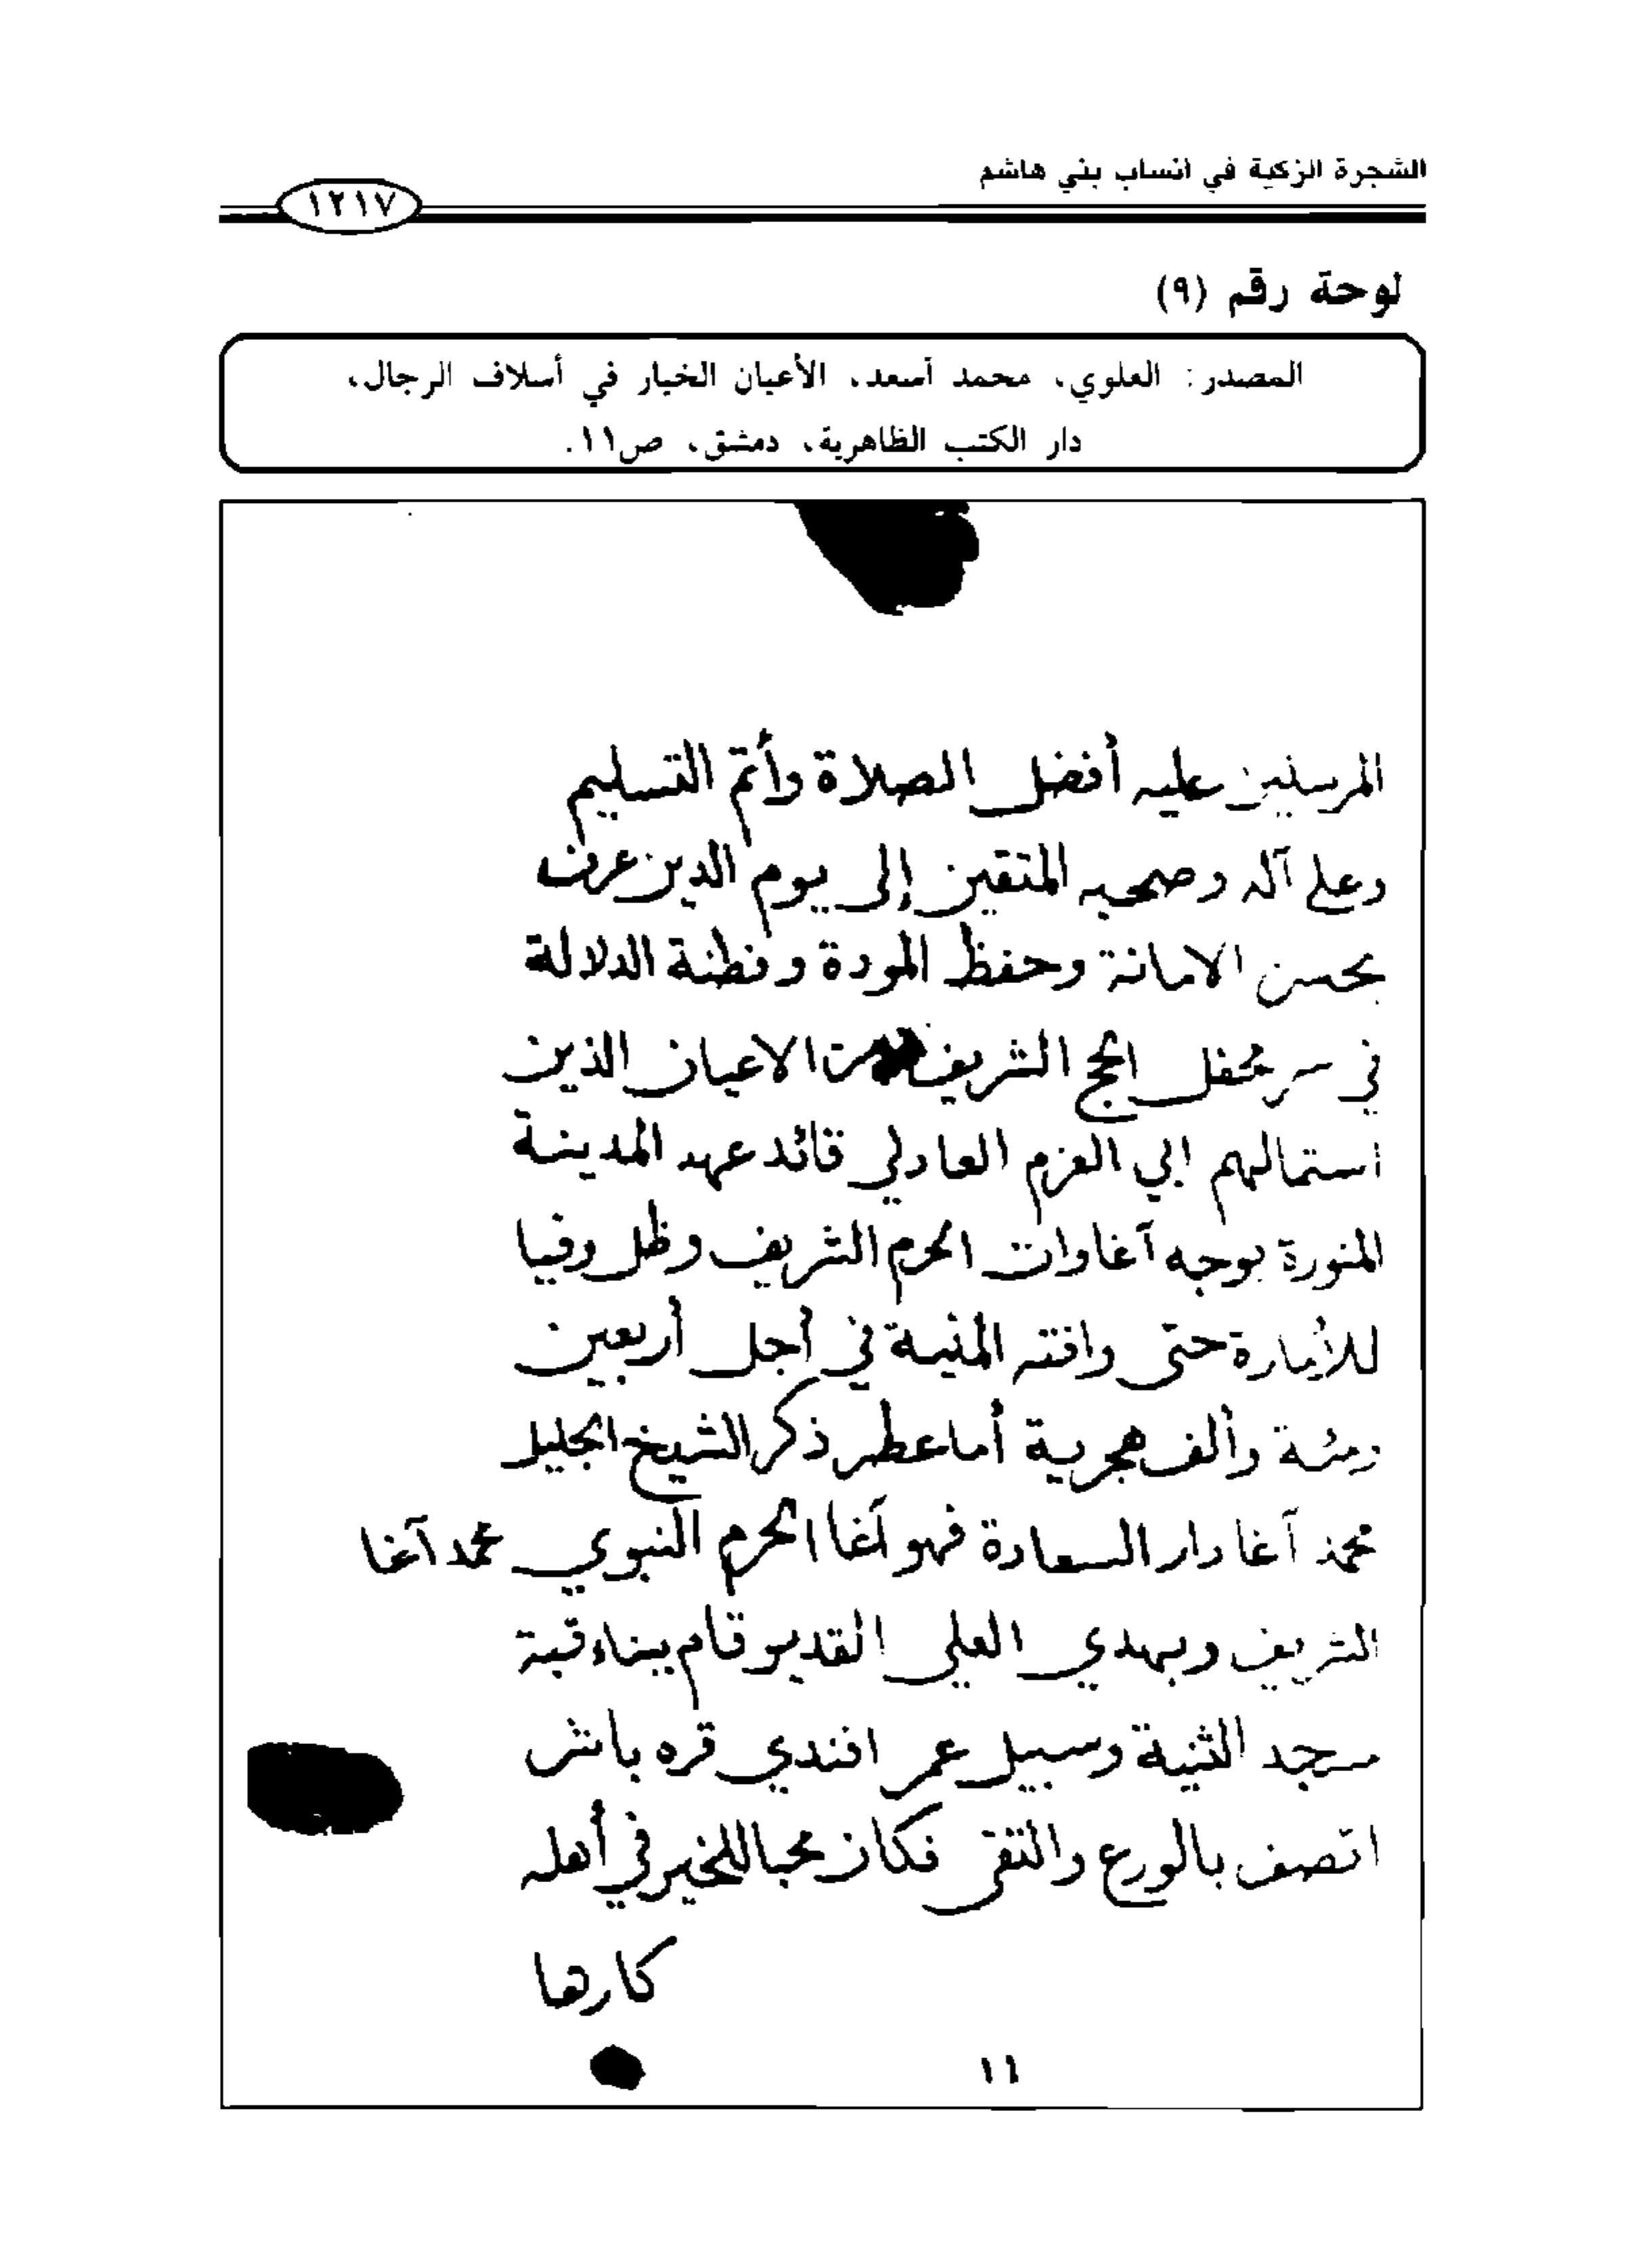 الشجرة الزكية في انساب بني هاشم
١٢١٧
لوحة رقم (٩)
المصدر: العلوي، محمد أسعد، الأعيان الخيار في أسلاف الرجال،
دار الكتب الظاهرية، دمشق، ص١١.
المرسلين عليه أفضل الصلاة وأتم التسليم
وعلى آله وصحبه المتقين إلى يوم الدين عرف
بحسن الامانة وحفظ المودة وفطنة الدلالة
في سر محفل الحج الشريف من الاعيان الذين
استمالهم ابي العزم العادلي قائد عهد المدينة
المنورة بوجه آغاوات الحرم الشريف وظل وفيا
حتى وافته المنية في أجل أربعين
ومئة وألف هجرية أما عطر ذكر الشيخ الجليل
محمد آغا دار السعادة فهو آغا الحرم النبوي محمد آغا
الشريف وبهدي العلي القدير قام ببناء قبة
مسجد الثنية وسبيل عمر افندي قره باش
اتصف بالورع والتقى فكان محبا للخير في أهله
كارها
١١